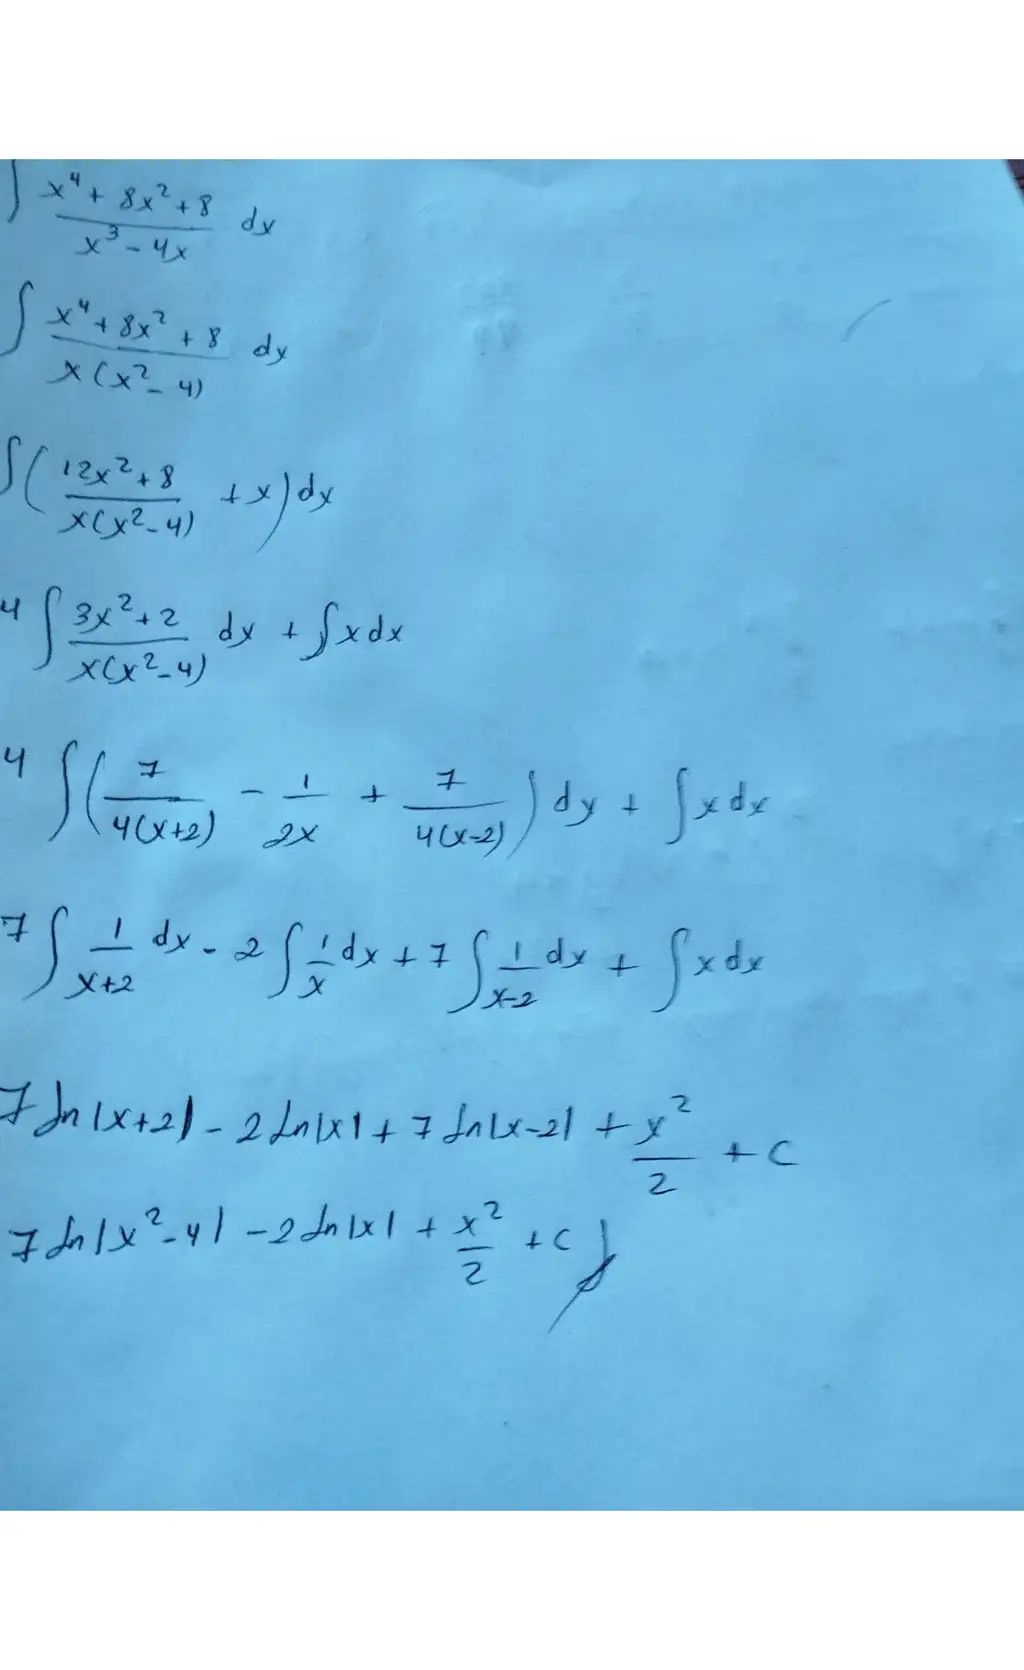 ∫ x⁴ + 8x² + 8 / x³ - 4x dx
∫ x⁴ + 8x² + 8 / x(x² - 4) dx
∫ ( 12x² + 8 / x(x² - 4) + x ) dx
4 ∫ 3x² + 2 / x(x² - 4) dx + ∫ x dx
4 ∫ ( 7 / 4(x+2) - 1 / 2x + 7 / 4(x-2) ) dx + ∫ x dx
7 ∫ 1 / x+2 dx - 2 ∫ 1 / x dx + 7 ∫ 1 / x-2 dx + ∫ x dx
7 ln |x+2| - 2 ln |x| + 7 ln |x-2| + x² / 2 + c
7 ln |x² - 4| - 2 ln |x| + x² / 2 + c